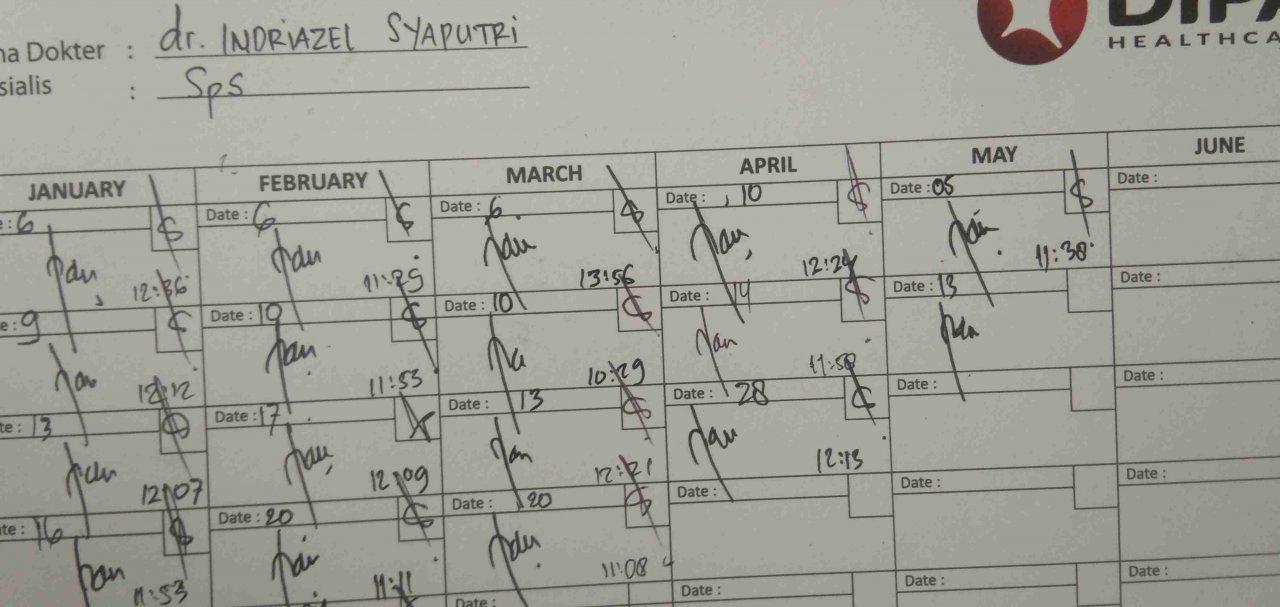 HEALTHCA
Dokter : dr. INDRIAZEL SYAPUTRI
sialis : Sps
JANUARY FEBRUARY MARCH APRIL MAY JUNE
: 6 Date : 6 Date : 6 Date : , 10 Date : 05 Date :
12:36 11:25 13:56 12:24 11:38
: 9 Date : 10 Date : 10 Date : 14 Date : 13 Date :
12:12 11:53 10:29 11:58
te : 13 Date : 17 Date : 13 Date : 28 Date : Date :
12:07 12:09 12:21 12:13
te : 16 Date : 20 Date : 20 Date : Date : Date :
11:53 11:11 11:08
Date : Date : Date : Date :